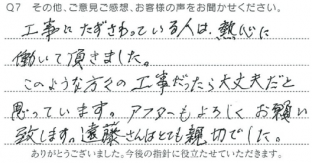 Q7 その他、ご意見ご感想、お客様の声をお聞かせください。
工事にたずさわっている人は、熱心に
働いて頂きました。
このような方々の工事だったら大丈夫だと
思っています。アフターもよろしくお願い
致します。遠藤さんはとても親切でした。
ありがとうございました。今後の指針に役立たせていただきます。